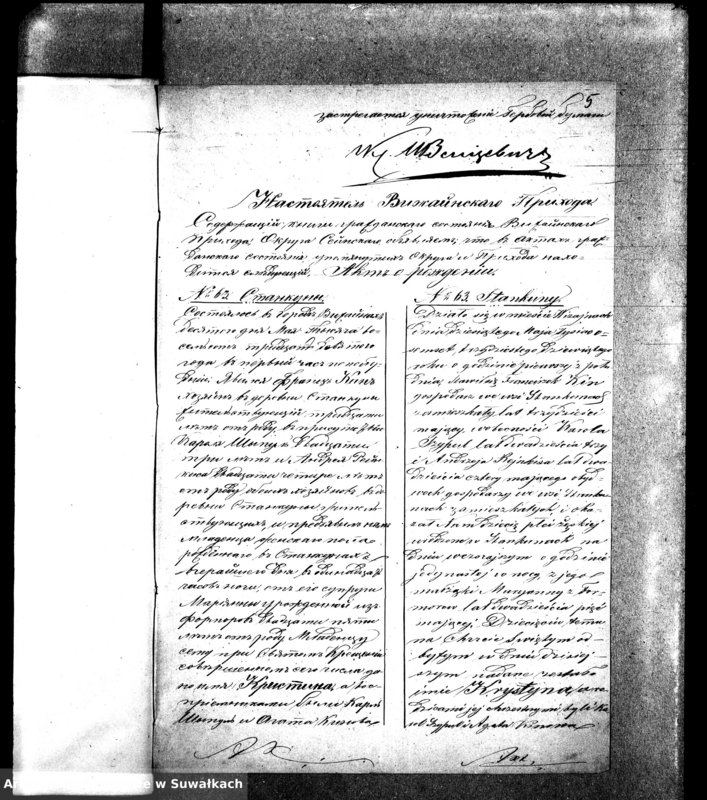 5
Гербовой бумаги
Настоятель Вижайнскаго Прихода
Содержащій книги гражданскаго состоянія Вижайнскаго
Прихода, Округа Сейнскаго объявляет, что в актах граж-
данскаго состоянія Округа и Прихода нахо-
дится слѣдующій. Акт о рожденіи.
№ 63 Станкуны
Состоялось в
десятого дня Мая Тысяча во-
семьсот тридцать девятого
года в первый час по полу-
дни. Явился Францъ Кинъ
хозяин в деревни Станкуны
жительствующій тридцати
лѣт от роду, в присутствіи
Кароля Шипуля двадцати
три лѣт и Андрея
двадцати четыре лѣт
от роду обоих хозяинов, в де-
ревни Станкунах житель-
ствующих, и предъявил нам
младенца женскаго пола
в Станкунах
вчерашняго дня в одинадцать
часов ночи, от его супруги
Маріянны урожденной из
двадцати пяти
лѣт от роду. Младенцу
сему при Святом Крещеніи
совершенном сего числа да-
но имя Кристина, а вос-
пріемниками были Карль
Шипуль и Агата Кинова
№ 63. Stankuny.
Działo się w mieście Wiżajnach
dnia dziesiątego Maja Tysiąc o-
śmset trzydziestego dziewiątego
roku o godzinie pierwszej z połu-
dnia, stawił się Franciszek Kin
gospodarz we wsi Stankunach
zamieszkały lat trzydzieści
mający, w obecności Karola
Szypul lat dwadzieścia trzy
i Andrzeja lat dwa-
dzieścia cztery mającego oby-
dwóch gospodarzy we wsi Stanku-
nach zamieszkałych i oka-
zał Nam dziecię płci żeńskiej
urodzone w Stankunach na
dniu wczorajszym o godzinie
jedynastej w nocy, z jego
małżonki Maryanny z For-
morow lat dwadzieścia pięć
mającej. Dziecięciu temu
na Chrzcie Świętym od-
bytym w dniu dzisiej-
szym nadane zostało
imie Krystyna, a ro-
dzicami jej chrzestnymi byli Ka-
rol Szypul i Agata Kinowa
Archiwum Państwowe w Suwałkach